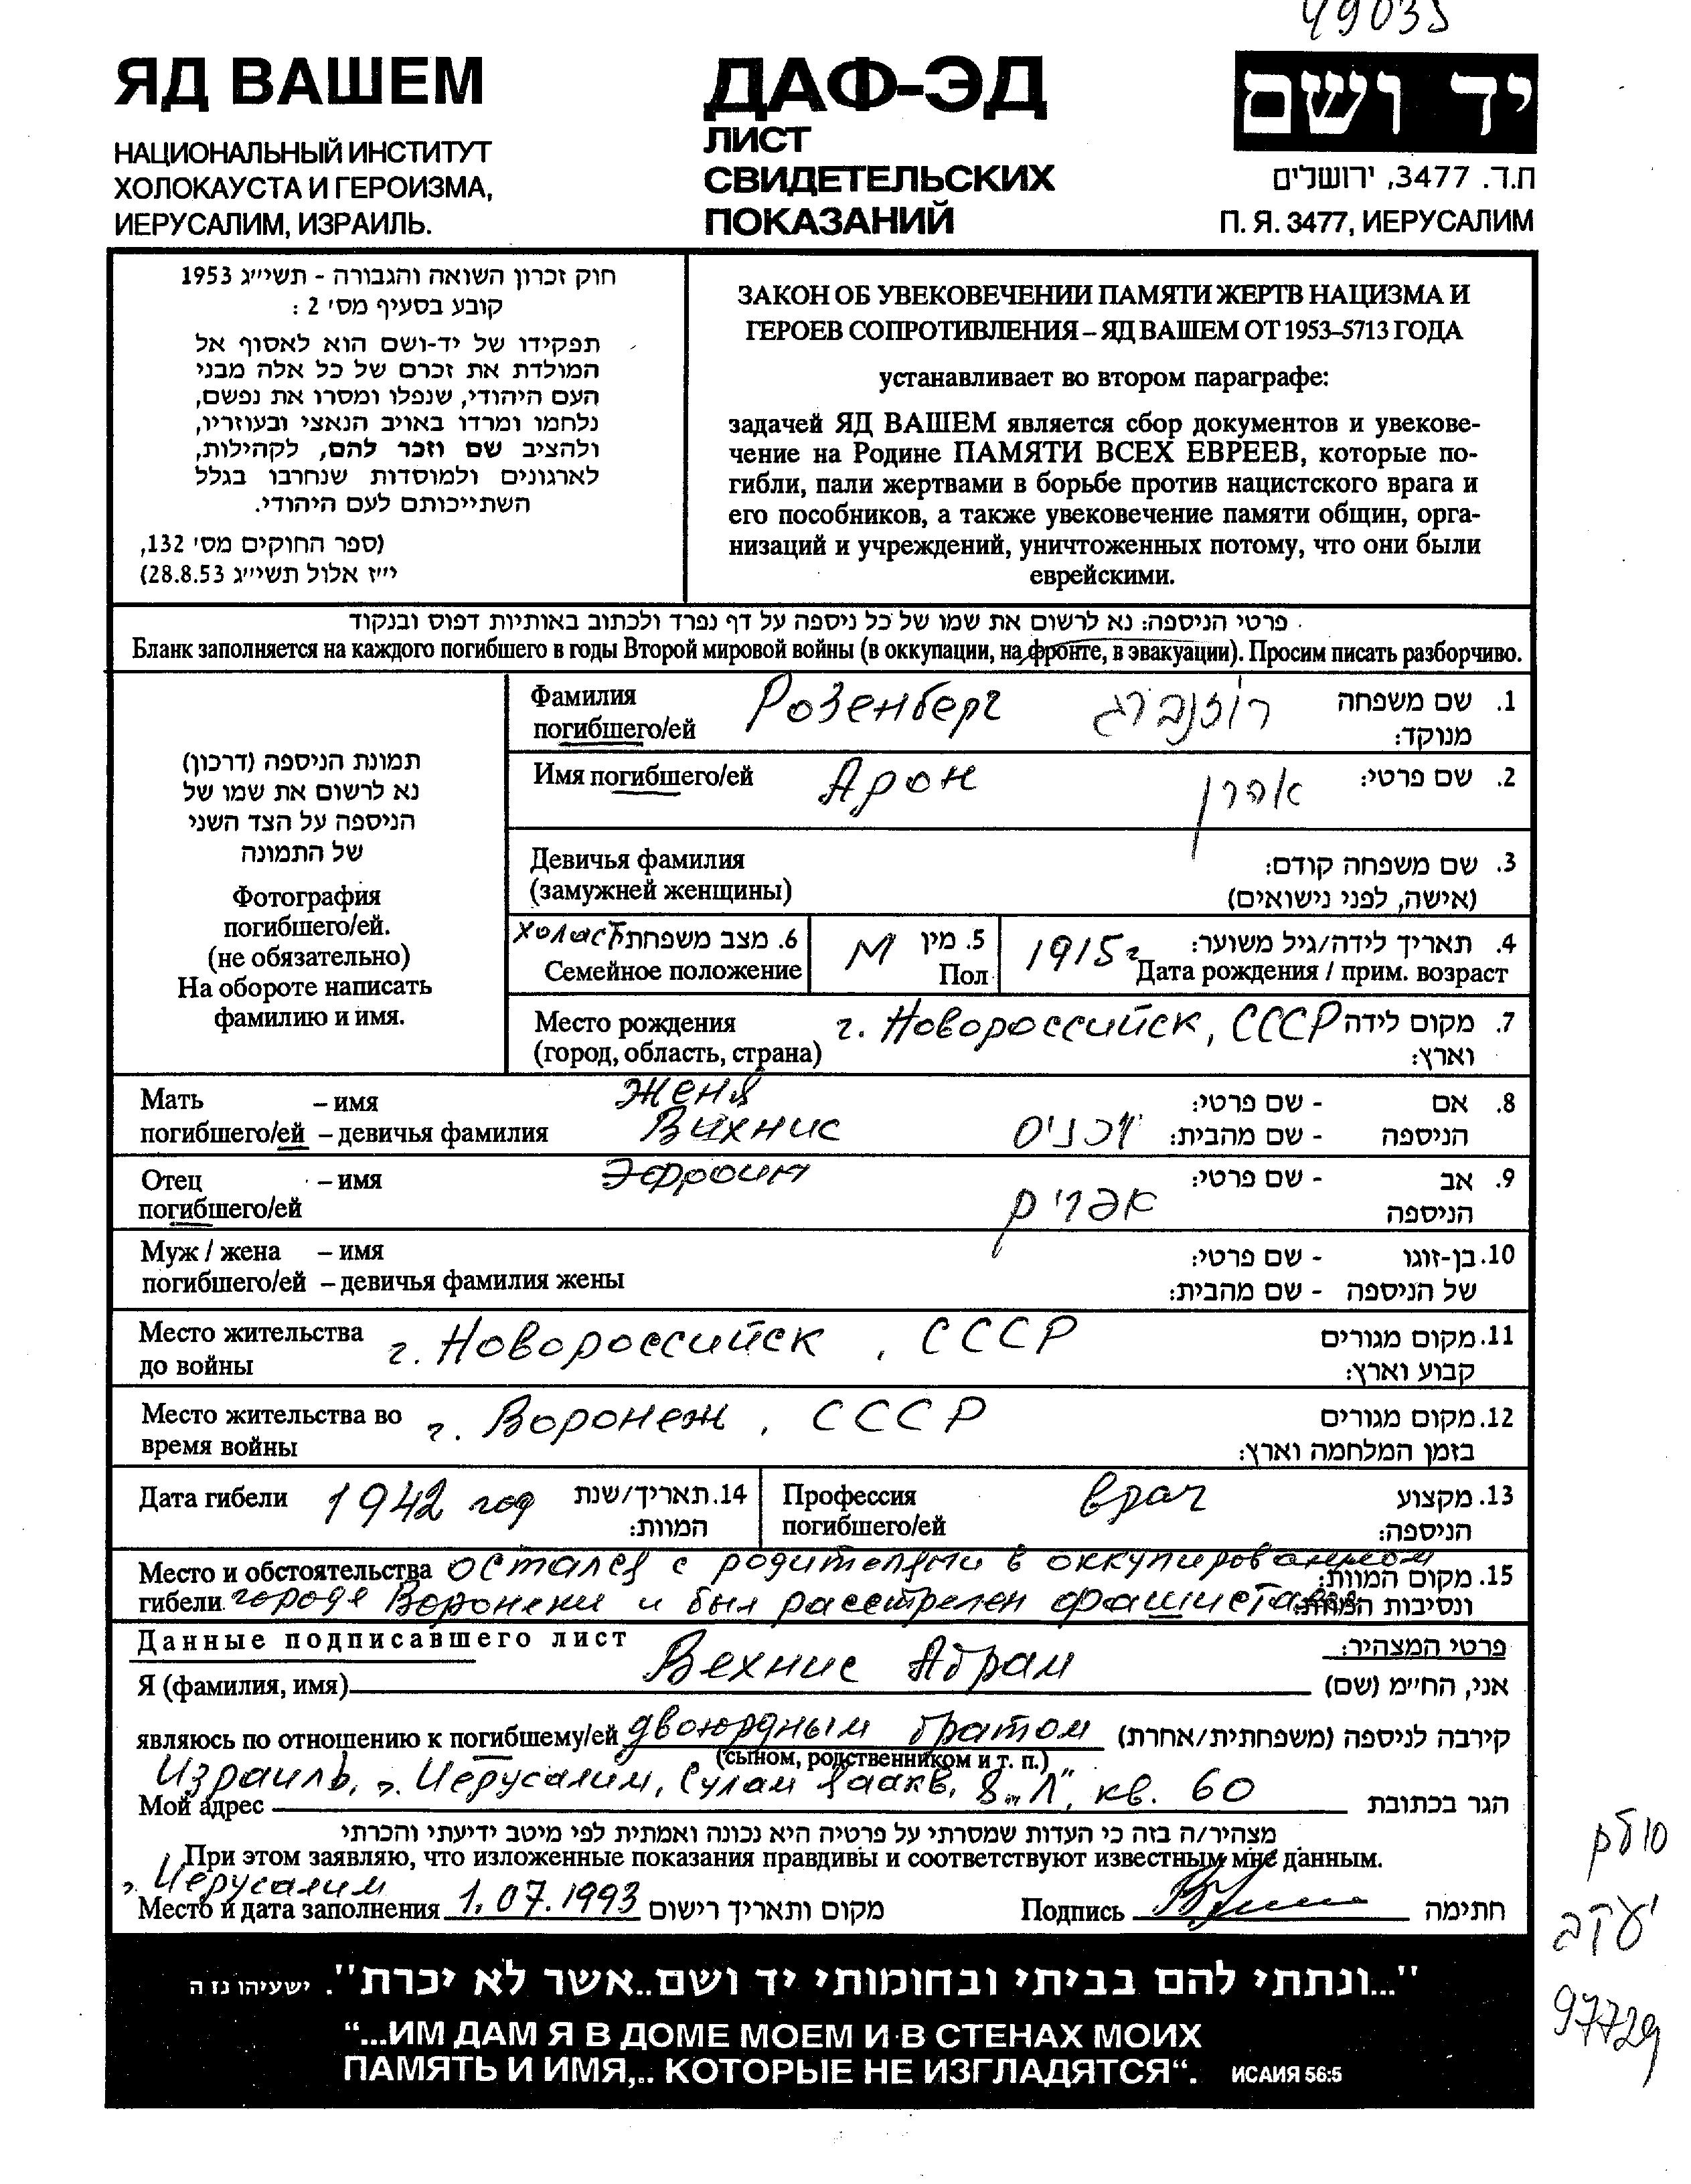 49035
ЯД ВАШЕМ
НАЦИОНАЛЬНЫЙ ИНСТИТУТ
ХОЛОКАУСТА И ГЕРОИЗМА,
ИЕРУСАЛИМ, ИЗРАИЛЬ.
ДАФ-ЭД
ЛИСТ
СВИДЕТЕЛЬСКИХ
ПОКАЗАНИЙ
יד ושם
ת.ד. 3477, ירושלים
П. Я. 3477, ИЕРУСАЛИМ
חוק זכרון השואה והגבורה - תשי״ג 1953
קובע בסעיף מס׳ 2 :
תפקידו של יד-ושם הוא לאסוף אל
המולדת את זכרם של כל אלה מבני
העם היהודי, שנפלו ומסרו את נפשם,
נלחמו ומרדו באויב הנאצי ובעוזריו,
ולהציב שם וזכר להם, לקהילות,
לארגונים ולמוסדות שנחרבו בגלל
השתייכותם לעם היהודי.
(ספר החוקים מס׳ 132,
י״ז אלול תשי״ג 28.8.53)
ЗАКОН ОБ УВЕКОВЕЧЕНИИ ПАМЯТИ ЖЕРТВ НАЦИЗМА И
ГЕРОЕВ СОПРОТИВЛЕНИЯ – ЯД ВАШЕМ ОТ 1953–5713 ГОДА
устанавливает во втором параграфе:
задачей ЯД ВАШЕМ является сбор документов и увекове-
чение на Родине ПАМЯТИ ВСЕХ ЕВРЕЕВ, которые по-
гибли, пали жертвами в борьбе против нацистского врага и
его пособников, а также увековечение памяти общин, орга-
низаций и учреждений, уничтоженных потому, что они были
еврейскими.
פרטי הניספה: נא לרשום את שמו של כל ניספה על דף נפרד ולכתוב באותיות דפוס ובנקוד
Бланк заполняется на каждого погибшего в годы Второй мировой войны (в оккупации, на фронте, в эвакуации). Просим писать разборчиво.
תמונת הניספה (דרכון)
נא לרשום את שמו של
הניספה על הצד השני
של התמונה
Фотография
погибшего/ей.
(не обязательно)
На обороте написать
фамилию и имя.
Фамилия Розенберг רוזנברג 1. שם משפחה
погибшего/ей מנוקד:
Имя погибшего/ей Арон אהרן 2. שם פרטי:
Девичья фамилия 3. שם משפחה קודם:
(замужней женщины) (אישה, לפני נישואים)
холост 6. מצב משפחתי М 5. מין 1915г 4. תאריך לידה/גיל משוער:
Семейное положение Пол Дата рождения / прим. возраст
Место рождения г. Новороссийск, СССР 7. מקום לידה
(город, область, страна) וארץ:
Мать – имя Женя 8. אם - שם פרטי:
погибшего/ей – девичья фамилия Вихнис וכניס הניספה - שם מהבית:
Отец – имя Эфроим אפרים 9. אב - שם פרטי:
погибшего/ей הניספה
Муж / жена – имя 10. בן-זוגו - שם פרטי:
погибшего/ей – девичья фамилия жены של הניספה - שם מהבית:
Место жительства г. Новороссийск, СССР 11. מקום מגורים
до войны קבוע וארץ:
Место жительства во г. Воронеж, СССР 12. מקום מגורים
время войны בזמן המלחמה וארץ:
Дата гибели 1942 год 14. תאריך/שנת Профессия врач 13. מקצוע
המוות: погибшего/ей הניספה:
Место и обстоятельства остался с родителями в оккупированном 15. מקום המוות:
гибели городе Воронеже и был расстрелен фашистами ונסיבות המוות:
Данные подписавшего лист פרטי המצהיר:
Я (фамилия, имя) Вехнис Абрам אני, הח״מ (שם)
являюсь по отношению к погибшему/ей двоюрдным братом קירבה לניספה (משפחתית/אחרת)
(сыном, родственником и т. п.)
Израиль, г. Иерусалим, Сулам Яаакв, 8 „Л", кв. 60
Мой адрес הגר בכתובת
מצהיר/ה בזה כי העדות שמסרתי על פרטיה היא נכונה ואמתית לפי מיטב ידיעתי והכרתי
При этом заявляю, что изложенные показания правдивы и соответствуют известным мне данным.
г. Иерусалим
Место и дата заполнения 1.07.1993 מקום ותאריך רישום Подпись חתימה
סולם
יעקב
97729
"...ונתתי להם בביתי ובחומותי יד ושם..אשר לא יכרת". ישעיהו נז ה
“...ИМ ДАМ Я В ДОМЕ МОЕМ И В СТЕНАХ МОИХ
ПАМЯТЬ И ИМЯ,.. КОТОРЫЕ НЕ ИЗГЛАДЯТСЯ“. ИСАИЯ 56:5